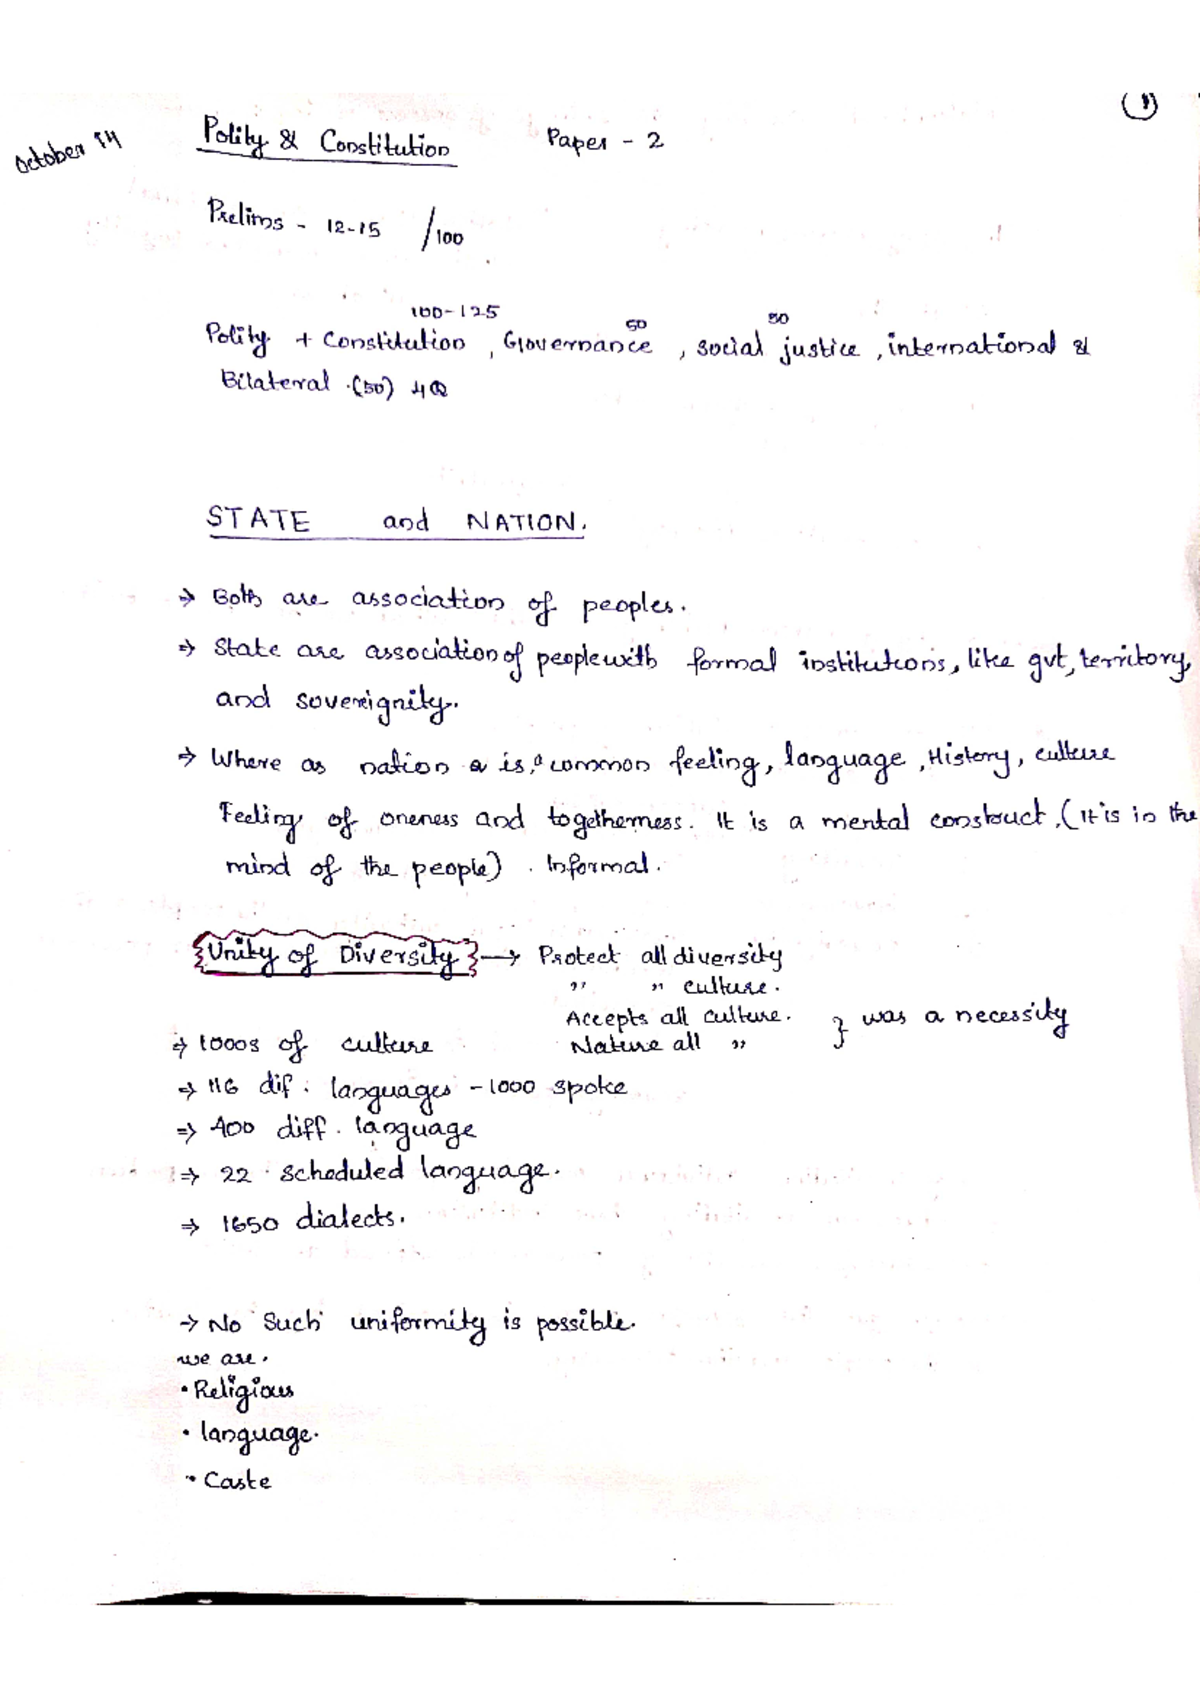 (1)
October 14
Polity & Constitution Paper - 2
Prelims - 12-15 /100
100-125 50 50
Polity + Constitution, Governance, social justice, international &
Bilateral.(50) 4Q
STATE and NATION.
⇒ Both are association of peoples.
⇒ State are association of people with formal institutions, like gvt, territory,
and soverignity.
⇒ Where as nation is a common feeling, language, History, culture
Feeling of oneness and togetherness. It is a mental construct. (It is in the
mind of the people). Informal.
Unity of Diversity → Protect all diversity
" " culture.
Accepts all culture. } was a necessity
⇒ 1000s of culture Nature all "
⇒ 116 dif. languages - 1000 spoke
⇒ 400 diff. language
⇒ 22 scheduled language.
⇒ 1650 dialects.
→ No such uniformity is possible.
we are.
• Religious
• language.
• Caste